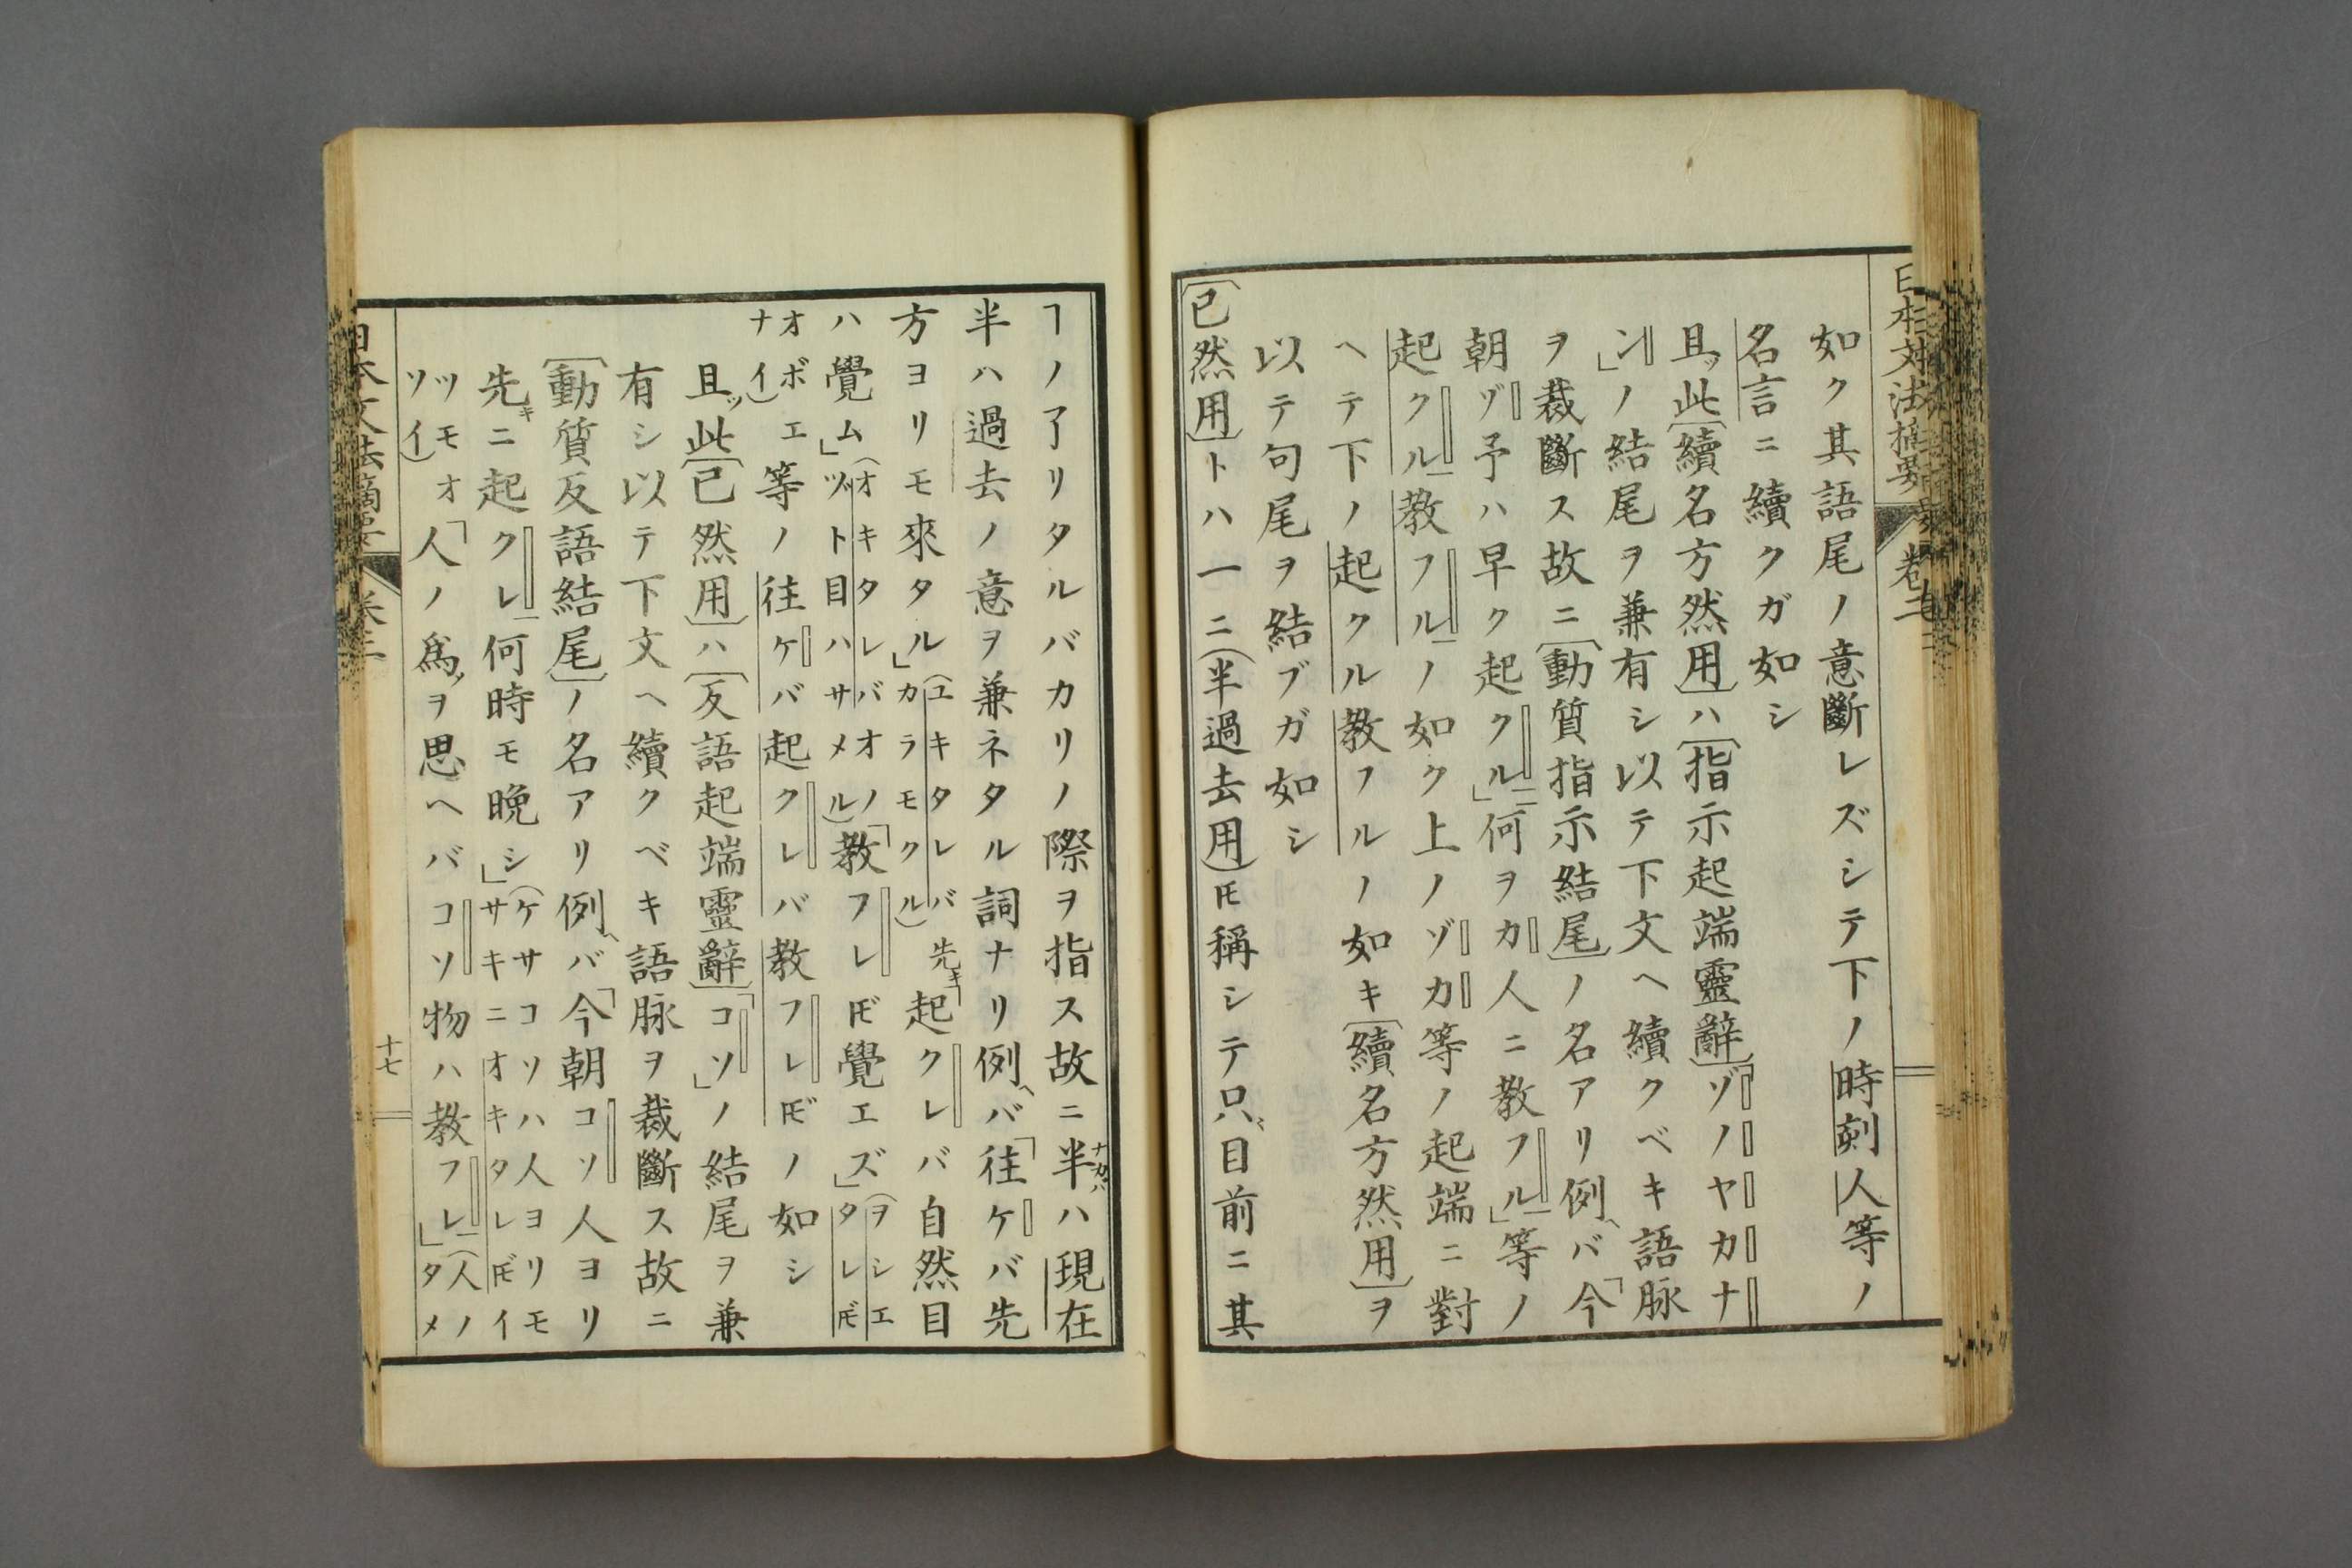 日本文法摘要 卷二
如ク其語尾ノ意斷レズシテ下ノ時刻人等ノ
名言ニ續クガ如シ
且ツ此〔續名方然用〕ハ〔指示起端靈辭〕「ゾノヤカナ
ン」ノ結尾ヲ兼有シ以テ下文ヘ續クベキ語脉
ヲ裁斷ス故ニ〔動質指示結尾〕ノ名アリ例ヘバ「今
朝ゾ予ハ早ク起クル」何ヲカ人ニ教フル」等ノ
起クル教フルノ如ク上ノゾカ等ノ起端ニ對
ヘテ下ノ起クル教フルノ如キ〔續名方然用〕ヲ
以テ句尾ヲ結ブガ如シ
〔已然用〕トハ一ニ(半過去用)𪜈稱シテ只ゞ目前ニ其
ヿノ了リタルバカリノ際ヲ指ス故ニ半ナカバハ現在
半ハ過去ノ意ヲ兼ネタル詞ナリ例ヘバ「往ケバ先
方ヨリモ來タル」(ユキタレバ先キカラモクル)「起クレバ自然目
ハ覺ム」(オキタレバオノヅト目ハサメル)「教フレ𪜈゙覺エズ」(ヲシエタレ𪜈゙
オボエナイ)等ノ往ケバ起クレバ教フレ𪜈゙ノ如シ
且ツ此〔已然用〕ハ〔反語起端靈辭〕「コソ」ノ結尾ヲ兼
有シ以テ下文ヘ續クベキ語脉ヲ裁斷ス故ニ
〔動質反語結尾〕ノ名アリ例ヘバ「今朝コソ人ヨリ
先キニ起クレ何時モ晩シ」(ケサコソハ人ヨリモサキニオキタレ𪜈゙イ
ツモオソイ)「人ノ爲ヲ思ヘバコソ物ハ教フレ」(人ノタメ
十七